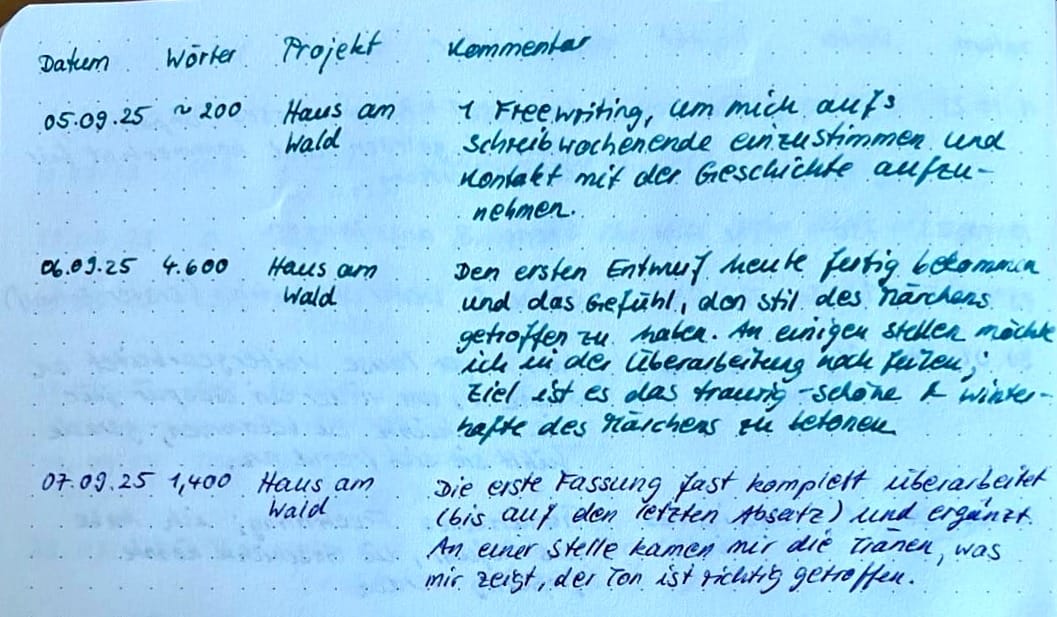 Datum Wörter Projekt Kommentar
05.09.25 ~200 Haus am 1 Freewriting, um mich aufs
Wald Schreibwochenende einzustimmen und
Kontakt mit der Geschichte aufzu-
nehmen.
06.09.25 4.600 Haus am Den ersten Entwurf heute fertig bekommen
Wald und das Gefühl, den Stil des Märchens
getroffen zu haben. An einigen Stellen möchte
ich in der Überarbeitung noch feilen;
Ziel ist es das traurig-schöne & winter-
hafte des Märchens zu betonen
07.09.25 1,400 Haus am Die erste Fassung fast komplett überarbeitet
Wald (bis auf den letzten Absatz) und ergänzt.
An einer Stelle kamen mir die Tränen, was
mir zeigt, der Ton ist richtig getroffen.